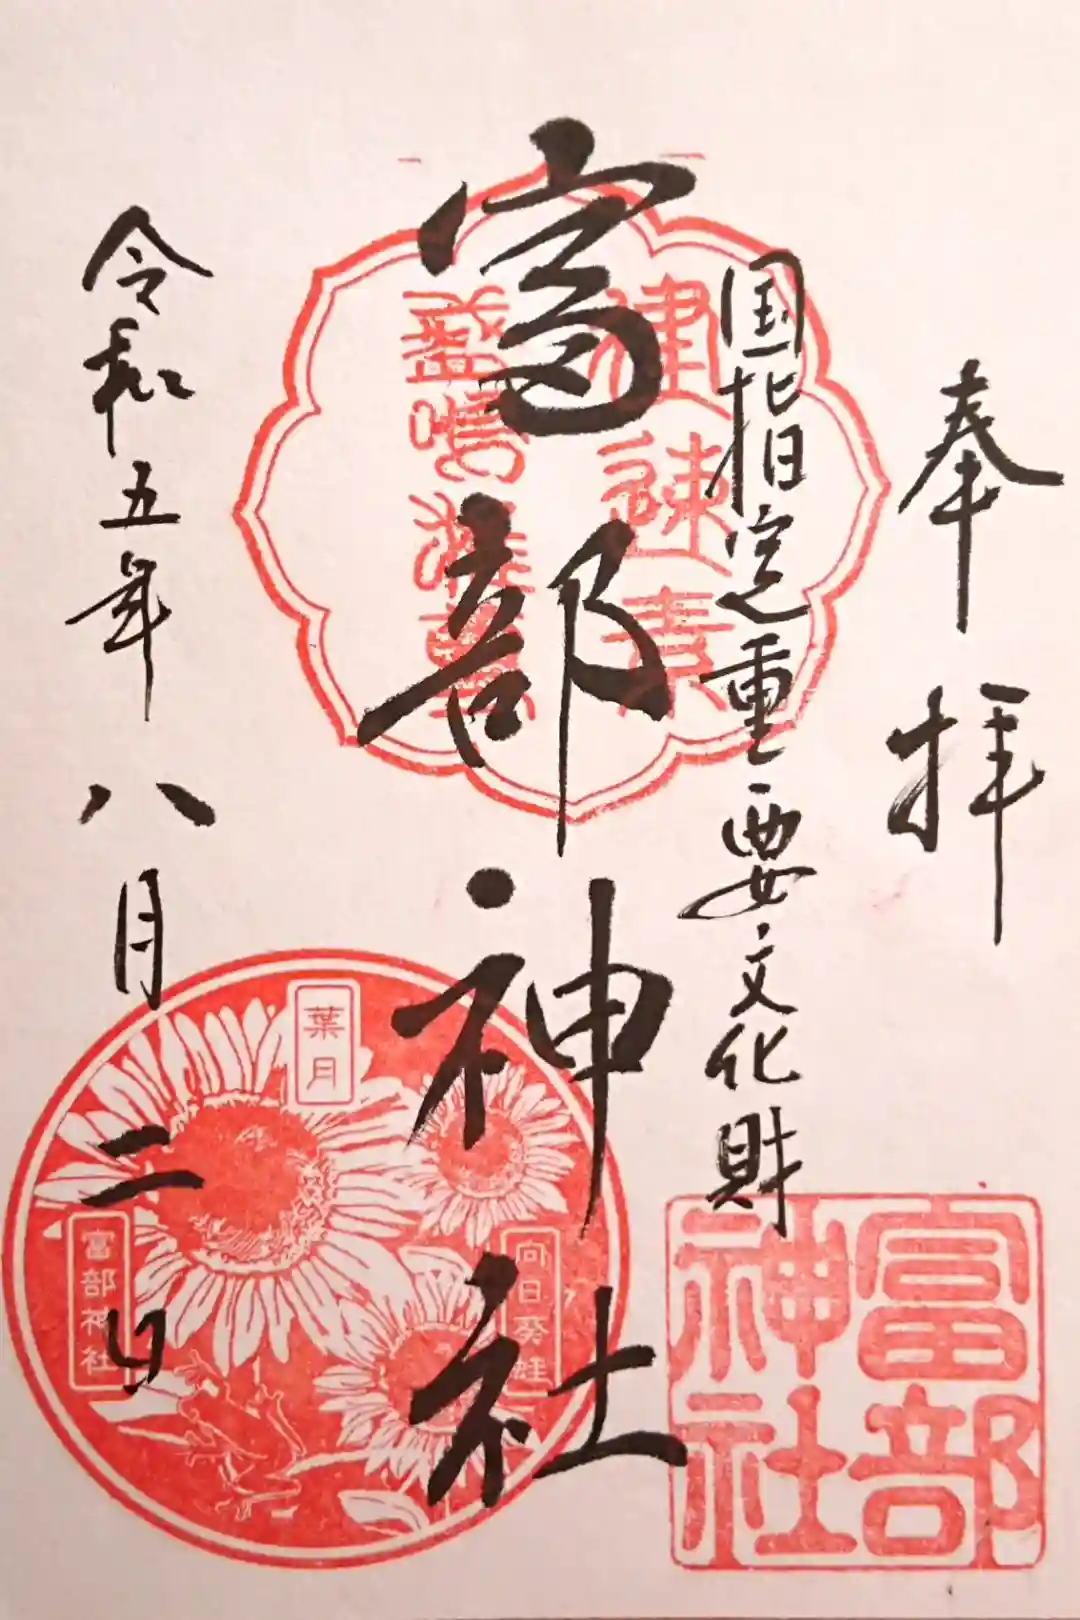 奉拝
国指定重要文化財
富部神社
令和五年八月二日
建速素
盞嗚
葉月
富部神社
向日葵
富部
神社